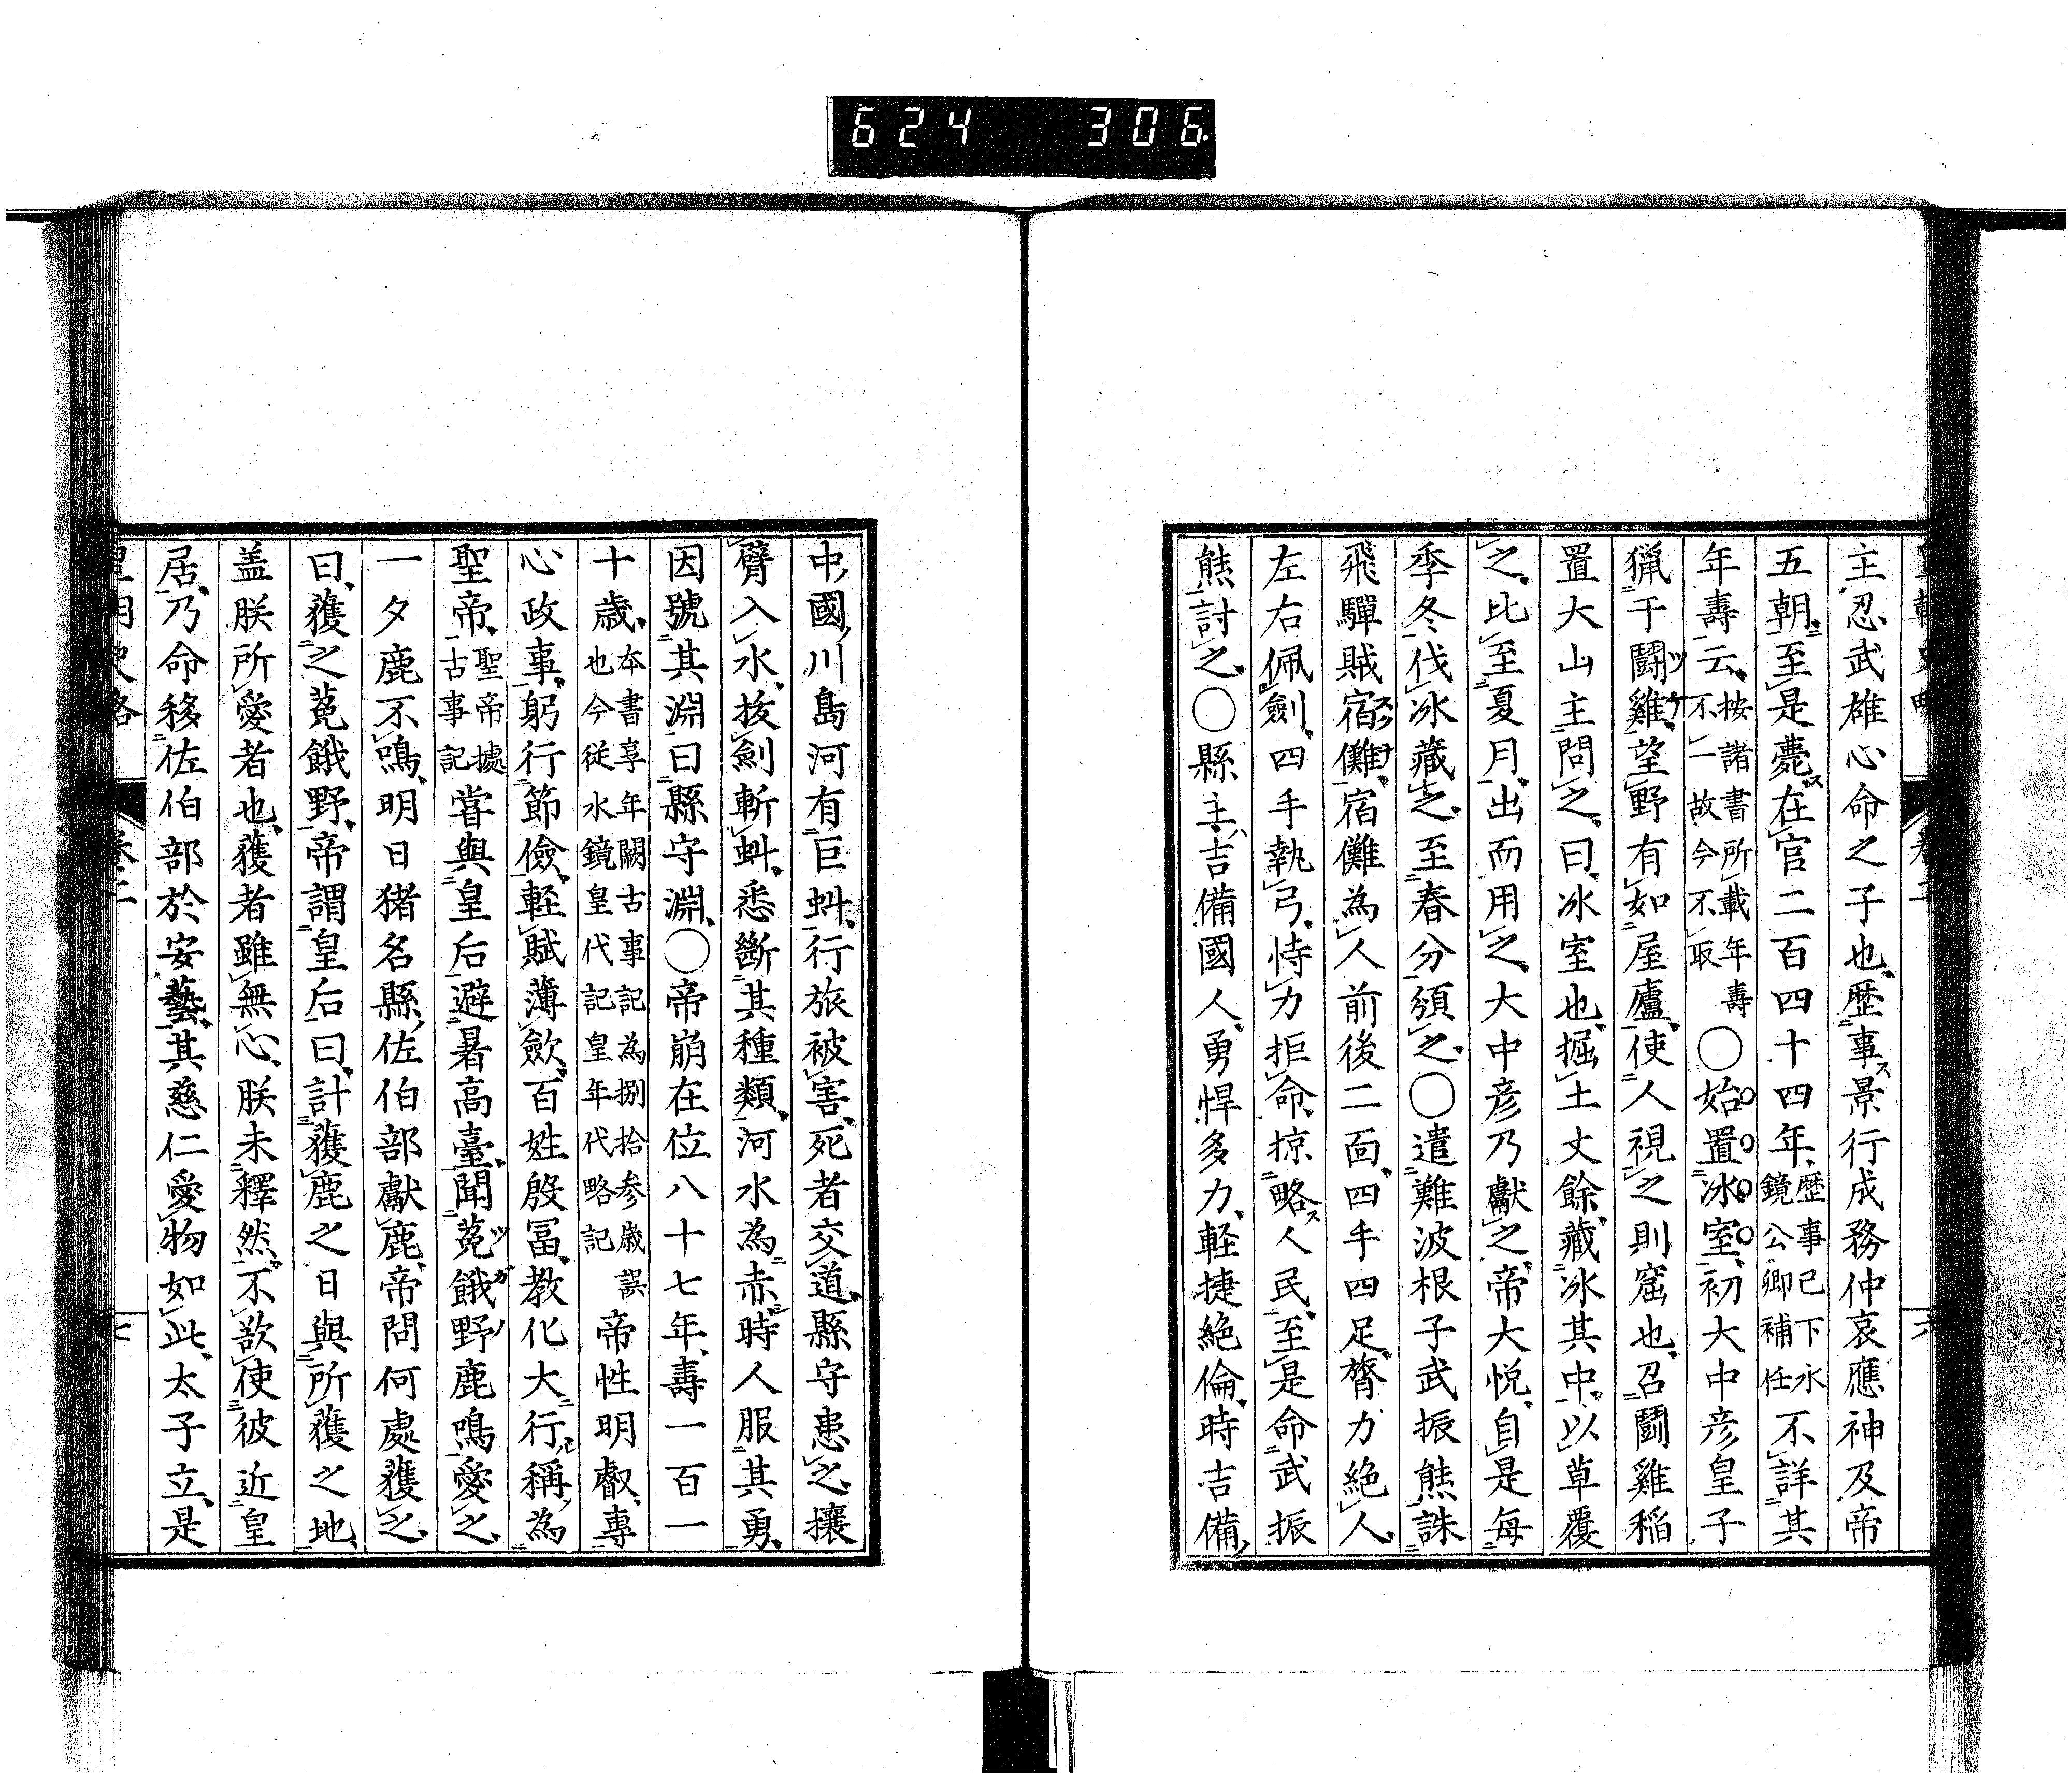 624 306
主忍武雄心命之子也歷事景行成務仲哀應神及帝
五朝至是薨在官二百四十四年歷事已下水鏡公卿補任不詳其
年壽云按諸書所載年壽不一故今不取○始置冰室初大中彥皇子
獵于鬪雞望野有如屋廬使人視之則窟也召鬪雞稲
置大山主問之曰冰室也掘土丈餘藏冰其中以草覆
之比至夏月出而用之大中彥乃獻之帝大悅自是每
季冬伐冰藏之至春分頒之○遣難波根子武振熊誅
飛驒賊宿儺宿儺為人前後二面四手四足膂力絕人
左右佩劍四手執弓恃力拒命掠略人民至是命武振
熊討之○縣主吉備國人勇悍多力軽捷絕倫時吉備
中國川島河有巨虯行旅被害死者交道縣守患之攘
臂入水拔劍斬虯悉斷其種類河水為赤時人服其勇
因號其淵曰縣守淵○帝崩在位八十七年壽一百一
十歲本書享年闕古事記為捌拾参歲誤也今従水鏡皇代記皇年代略記帝性明叡專
心政事躬行節儉軽賦薄斂百姓殷冨教化大行稱為
聖帝聖帝據古事記甞與皇后避暑高臺聞菟餓野鹿鳴愛之
一夕鹿不鳴明日猪名縣佐伯部獻鹿帝問何處獲之
曰獲之菟餓野帝謂皇后曰計獲鹿之日與所獲之地
盖朕所愛者也獲者雖無心朕未釋然不欲使彼近皇
居乃命移佐伯部於安藝其慈仁愛物如此太子立是